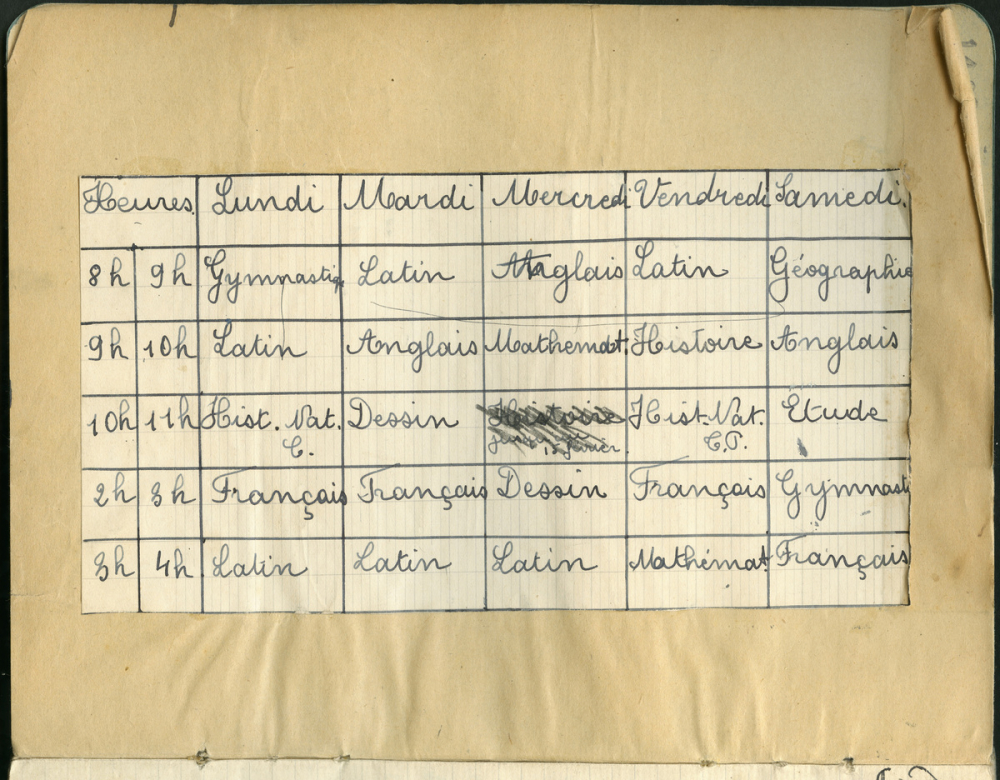 Heures Lundi Mardi Mercredi Vendredi Samedi.
8h 9h Gymnastiq Latin Anglais Latin Géographie
9h 10h Latin Anglais Mathémat. Histoire Anglais
10h 11h Hist. Nat. Dessin Histoire Hist. Nat. Etude
C. 15 février. C.P.
2h 3h Français Français Dessin Français Gymnasti
3h 4h Latin Latin Latin Mathémat. Français